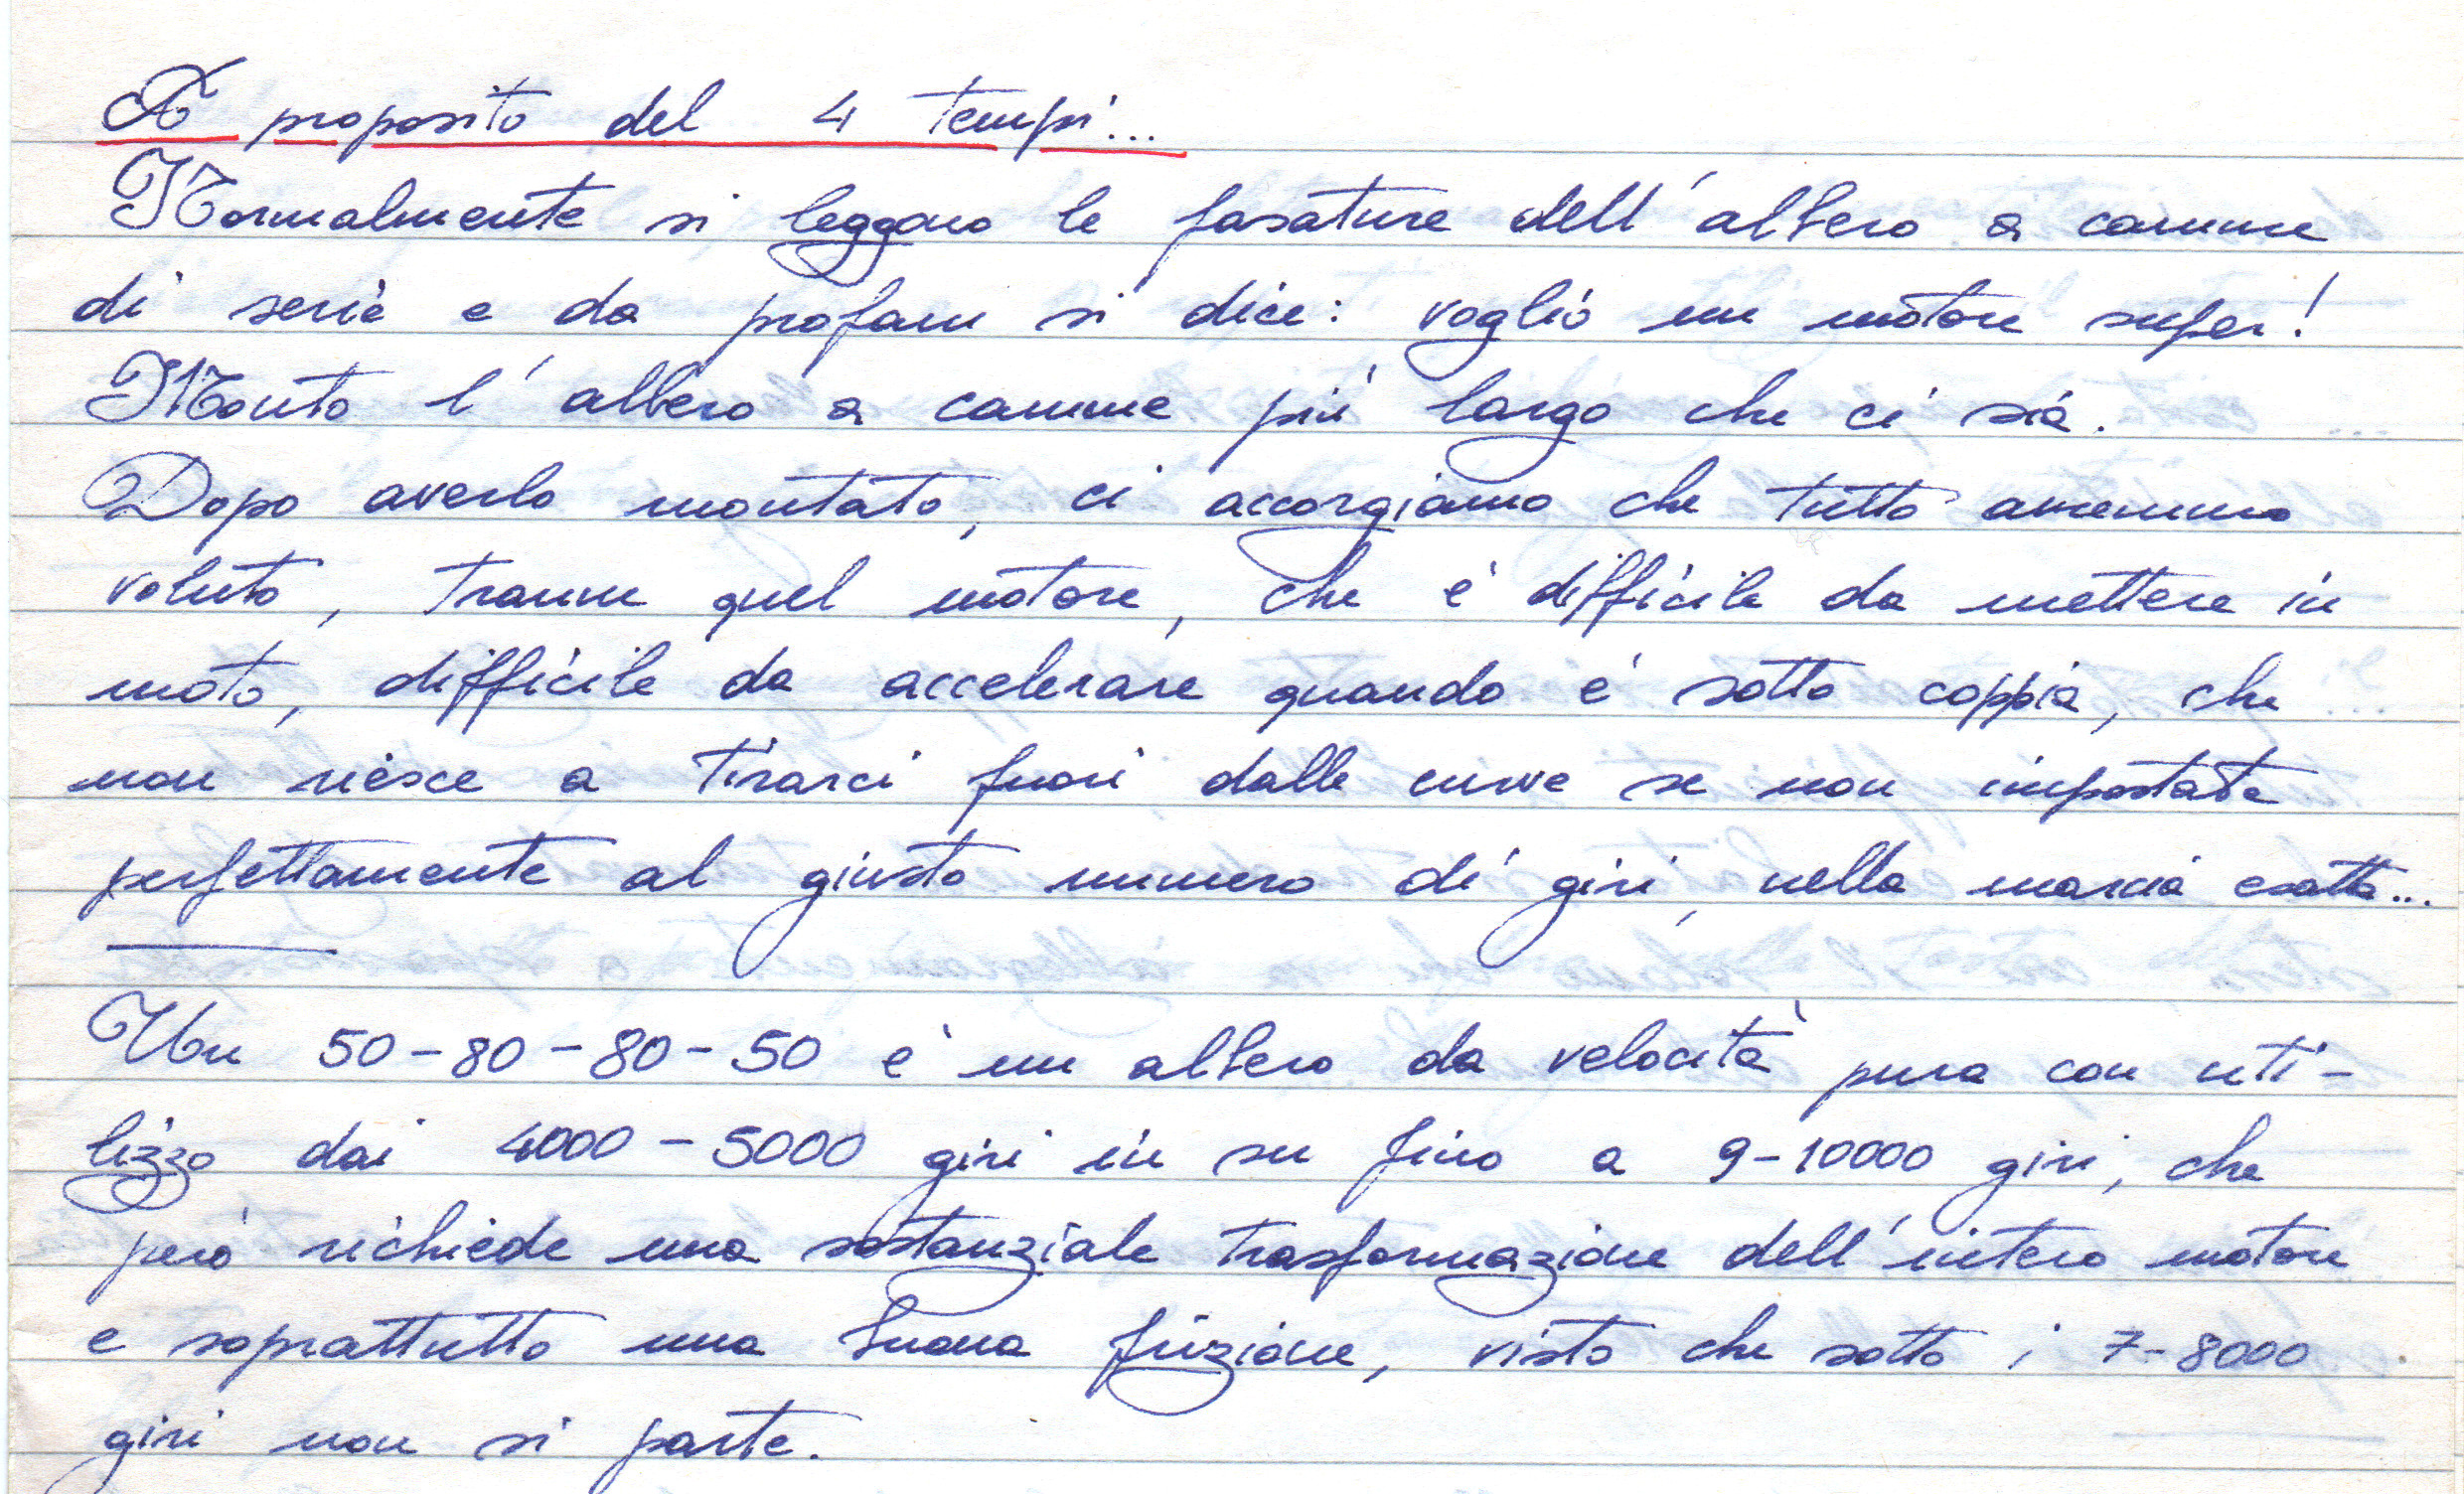 A proposito del 4 tempi...
Normalmente si leggono le fasature dell'albero a camme
di serie e da profani si dice: voglio un motore super!
Monto l'albero a camme più largo che ci sia.
Dopo averlo montato, ci accorgiamo che tutto avremmo
voluto, tranne quel motore, che è difficile da mettere in
moto, difficile da accelerare quando è sotto coppia, che
non riesce a tirarci fuori dalle curve se non impostate
perfettamente al giusto numero di giri, nella marcia esatta...
Un 50-80-80-50 è un albero da velocità pura con uti-
lizzo dai 4000-5000 giri in su fino a 9-10000 giri, che
però richiede una sostanziale trasformazione dell'intero motore
e soprattutto una buona frizione, visto che sotto i 7-8000
giri non si parte.